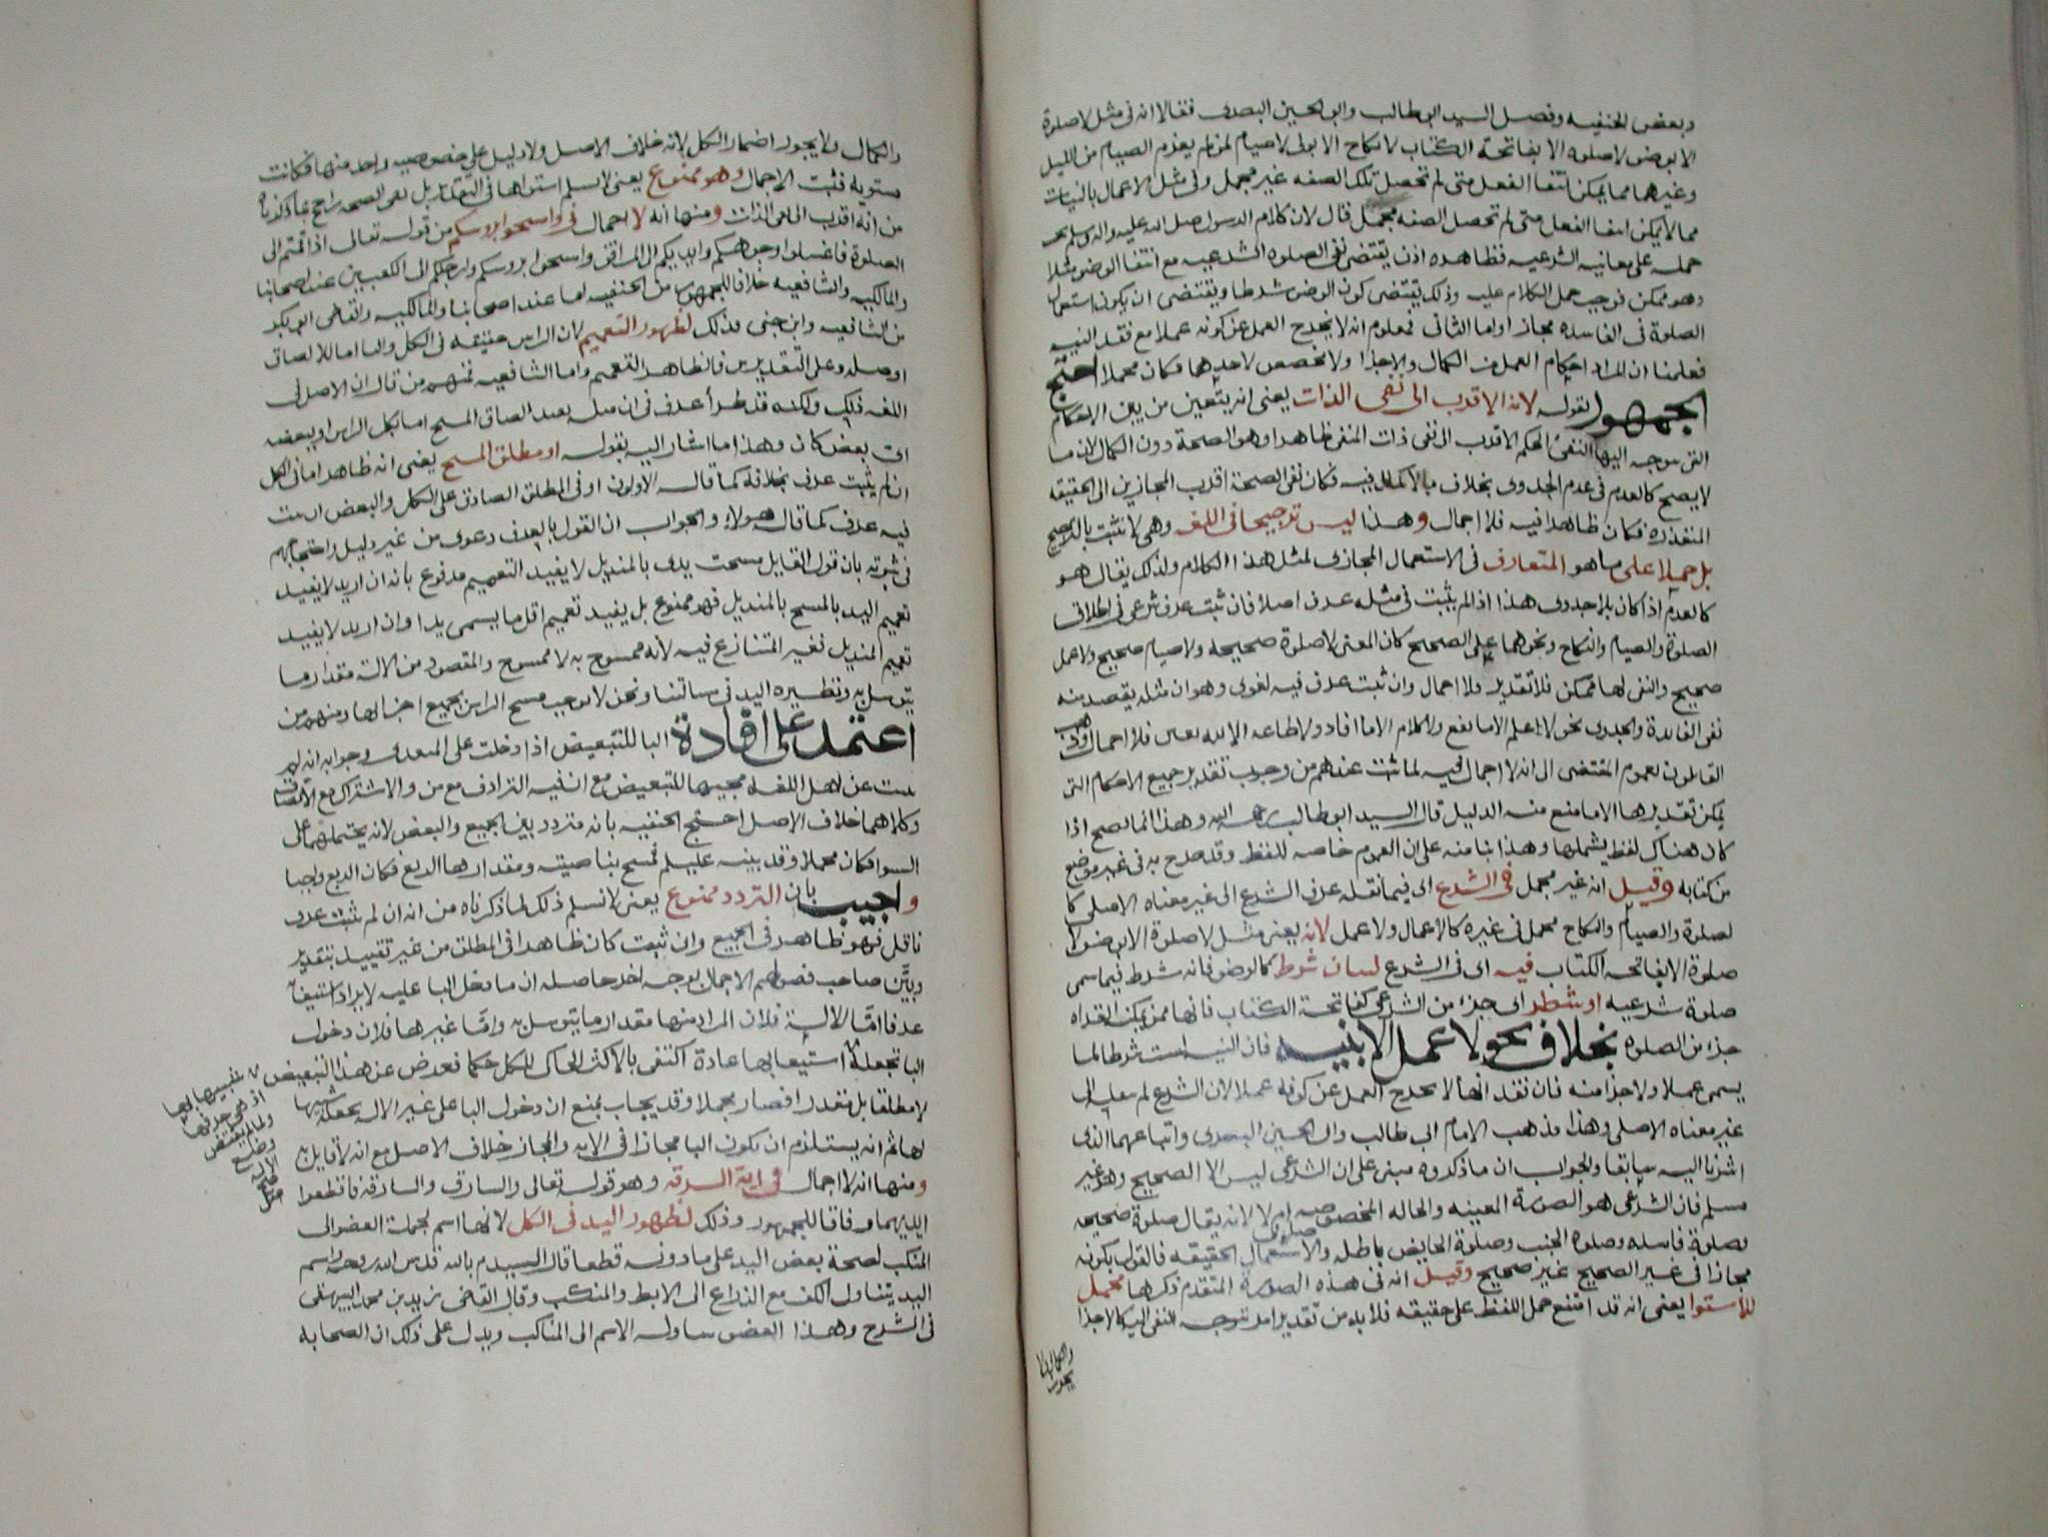 وبعض الحنفيه وفصل السيد ابوطالب وابو الحسين البصري فقالا انه في مثل لاصلوة
الا بوضوء لاصلوة الا بفاتحة الكتاب لا نكاح الا بولى لاصيام لمن لم يعزم الصيام من الليل
وغيرهما مما يمكن انتفا الفعل متى لم تحصل تلك الصفه غير مجمل وفى مثل الاعمال بالنيات
مما لا يمكن انتفا الفعل متى لم تحصل الصفه مجمل قال لان كلام الرسول صلى الله عليه واله وسلم
حمله على معانيه الشرعيه فظاهره اذن يقتضى نفى الصلوة الشرعيه مع انتفا الوضوء مثلا
وهو ممكن فوجب حمل الكلام عليه وذلك يقتضى كون الوضوء شرطا ويقتضى ان يكون استعمال
الصلوة فى الفاسده مجازا واما الثانى فمعلوم انه لا يخرج العمل عن كونه عملا مع فقد النيه
فعلمنا ان المراد احكام العمل من الكمال والاجزا ولا مخصص لاحدهما فكان مجملا احتج
الجمهور بقوله لانه الاقرب الى نفى الذات يعنى انه يتعين من بين الاحكام
التى يتوجه اليها النفى الحكم الاقرب الى نفى ذات المنفى ظاهرا وهو الصحة دون الكمال لان ما
لا يصح كالعدم فى عدم الجدوى بخلاف ما لا يكمل فيه فكان نفى الصحة اقرب المجازين الى الحقيقة
المتعذرة فكان ظاهرا فيه فلا اجمال وهذا ليس ترجيحا فى اللغه وهى لا تثبت بالترجيح
بل حملا على ما هو المتعارف فى الاستعمال المجازى لمثل هذا الكلام ولذلك يقال هو
كالعدم اذا كان بلا جدوى هذا اذا لم يثبت فى مثله عرف اصلا فان ثبت عرف شرعى فى اطلاق
الصلوة والصيام والنكاح ونحوهما على الصحيح كان المعنى لاصلوة صحيحه ولا صيام صحيح ولا عمل
صحيح والنفى لها ممكن فلا تقدير ولا اجمال وان ثبت عرف فيه لغوى وهو ان مثله يقصد منه
نفى الفائدة والجدوى نحو لا علم الا ما نفع ولا كلام الا ما افاد ولا طاعه الا لله تعين فلا اجمال وذهب
القائلون بعموم المقتضى الى انه لا اجمال فيه لما ثبت عندهم من وجوب تقدير جميع الاحكام التى
يمكن تقديرها الا ما منع منه الدليل قال السيد ابوطالب رحمه الله وهذا انما يصح اذا
كان هناك لفظ يشملها وهذا بنا منه على ان العموم خاصه للفظ وقد صرح به فى غير موضع
من كتابه وقيل انه غير مجمل فى الشرع اى فيما نقله عرف الشرع الى غير معناه الاصلى كا
لصلوة والصيام والنكاح مجمل فى غيره كالاعمال ولا عمل لانه يعنى مثل لاصلوة الا بوضوء لا
صلوة الا بفاتحه الكتاب فيه اى فى الشرع لبيان شرط كالوضوء فانه شرط فيما سمى
صلوة شرعيه او شطر اى جزء من الشرعى كفاتحة الكتاب فانها
جزء من الصلوة بخلاف نحو لا عمل الا بنيه فان النيه ليست شرطا لما
يسمى عملا ولا جزا منه فان فقدانها لا يخرج العمل عن كونه عملا لان الشرع لم ينقله الى
غير معناه الاصلى وهذا مذهب الامام ابى طالب وابى الحسين البصرى واتباعهما الذى
اشرنا اليه سابقا والجواب ان ما ذكروه مبنى على ان الشرعى ليس الا الصحيح وهو غير
مسلم فان الشرعى هو الصورة المعينه والحاله المخصوصه لانه يقال صلوة صحيحه
وصلوة فاسده وصلوة الجنب وصلوة الحايض باطله والاصل فى الاستعمال الحقيقه فالقول بكونه
مجازا فى غير الصحيح غير صحيح وقيل انه فى هذه الصورة المتقدم ذكرها مجمل
للاستوا يعنى انه قد امتنع حمل اللفظ على حقيقته فلا بد من تقدير امر تتوجه النفى اليه كالاجزا
والكمال ولا يجوز
والكمال ولا يجوز اضمار الكل لانه خلاف الاصل ولا دليل على خصوصيه واحد منهما فكانت
مستويه فثبت الاجمال وهو ممنوع يعنى لا نسلم استواها فى التقدير بل نفى الصحه راجح بما ذكرناه
من انه اقرب الى نفى الذات ومنها انه لا اجمال فى وامسحوا برءوسكم من قوله تعالى اذا قمتم الى
الصلوة فاغسلوا وجوهكم وايديكم الى المرافق وامسحوا بروسكم وارجلكم الى الكعبين عند اصحابنا
والمالكيه والشافعيه خلافا للجمهور من الحنفيه اما عند اصحابنا والمالكيه والقاضى ابى بكر
من الشافعيه وابن جنى فذلك لظهور التعميم لان الراس حقيقه فى الكل والبا اما للالصاق
او صله وعلى التقديرين فالظاهر التعميم واما الشافعيه فمنهم من قال ان الاصل فى
اللغه ذلك ولكنه قد طرأ عرف فى ان مثله يفيد الصاق المسح اما بكل الراس او ببعضه
اى بعض كان وهذا ما اشار اليه بقوله او مطلق المسح يعنى انه ظاهر اما فى الكل
ان لم يثبت عرف بخلافه كما قاله الاولون او فى المطلق الصادق على الكل والبعض ان ثبت
فيه عرف كما قال هولاء والجواب ان القول بالعرف دعوى من غير دليل واحتجاجهم
فى ثبوته بان قول القايل مسحت يدى بالمنديل لا يفيد التعميم مدفوع بانه ان اريد لا يفيد
تعميم اليد بالمسح بالمنديل فهو ممنوع بل يفيد تعميم اقل ما يسمى يدا وان اريد لا يفيد
تعميم المنديل فغير المتنازع فيه لانه ممسوح به لا ممسوح والمقصود من الالة مقدار ما
يتوسل به ونظيره اليد فى مسالتنا ونحن لا نوجب مسح الراس بجميع اجزائها ومنهم من
اعتمد على افادة البا للتبعيض اذا دخلت على المتعدى وجوابه انه لم
يثبت عن اهل اللغه مجيها للتبعيض مع ان فيه الترادف مع من والاشتراك مع الالصاق
وكلاهما خلاف الاصل احتج الحنفيه بانه متردد بين الجميع والبعض لانه يحتملهما على
السوا فكان مجملا وقد بينه عليلم فمسح بناصيته ومقدارها الربع فكان الربع واجبا
واجيب بان التردد ممنوع يعنى لا نسلم ذلك لما ذكرناه من انه ان لم يثبت عرف
ناقل فهو ظاهر فى الجميع وان ثبت كان ظاهرا فى المطلق من غير تقييد بتقدير
وبيَّن صاحب فصولهم الاجمال بوجه اخر حاصله ان ما دخل البا عليه لا يراد استيفاؤه
عرفا امّا الالة فلان المراد منها مقدار ما يتوسل به وامّا غيرها فلان دخول
البا تجعله استيعابها عادة اكتفى بالاكثر الحاكى للكل حكما فعرض عن هذا التبعيض
لا مطلقا بل مقدرا فصار مجملا وقد يجاب بمنع ان دخول البا على غير الاله يجعله شبيها
لها ثم انه يستلزم ان يكون البا مجازا فى الايه والمجاز خلاف الاصل مع انه لا قايل به
ومنها انه لا اجمال فى اية السرقه وهو قوله تعالى والسارق والسارقة فاقطعوا
ايديهما وفاقا للجمهور وذلك لظهور اليد فى الكل لانها اسم لجملة العضو الى
المنكب لصحة بعض اليد على ما دونه قطعا قال السيد م بالله قدس الله روحه واسم
اليد يتناول الكف مع الذراع الى الابط والمنكب وقال القاضى زيد بن محمد
فى الشرح وهذا العضو يتناوله الاسم الى المناكب ويدل على ذلك ان الصحابه